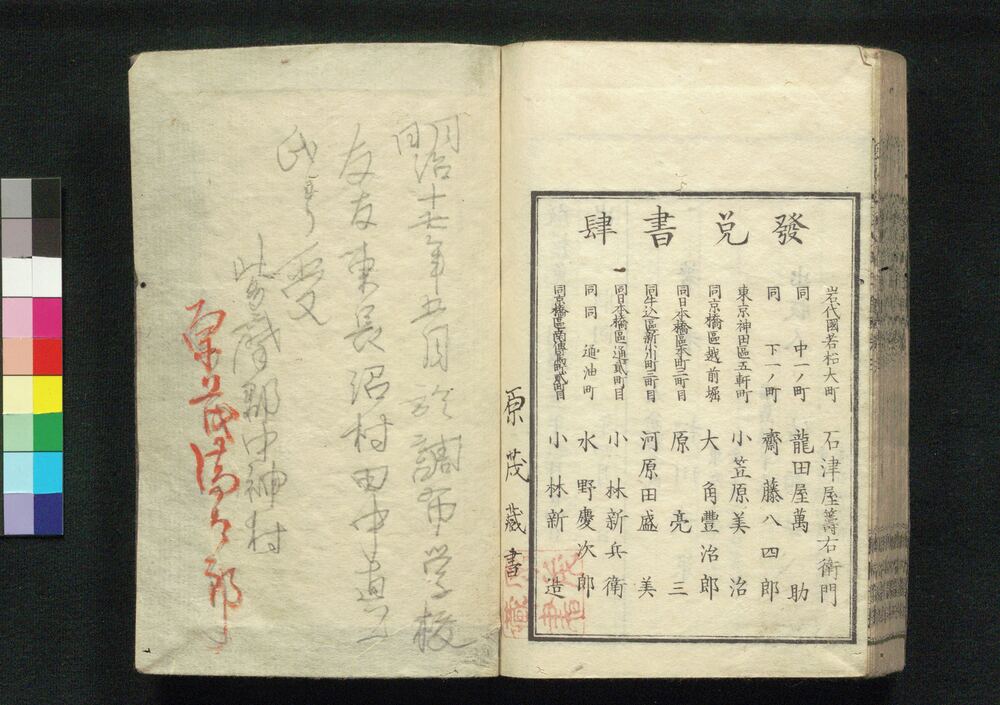 發兌書肆
岩代國若松大町 石津屋籌右衛門
同 中一ノ町 龍田屋萬助
同 下一ノ町 齋藤八四郎
東京神田區五軒町 小笠原美治
同京橋區越前堀 大角豐治郎
同日本橋區本町二町目 原亮三
同牛込區新小川町三町目 河原田盛美
同日本橋區通貳町目 小林新兵衛
同同通油町 水野慶次郎
同京橋區南傳馬町貳町目 小林新造
原茂藏書
明治十七年五月於調布学校
友友東長沼村田中
氏ゟ受
郡中神村
原茂